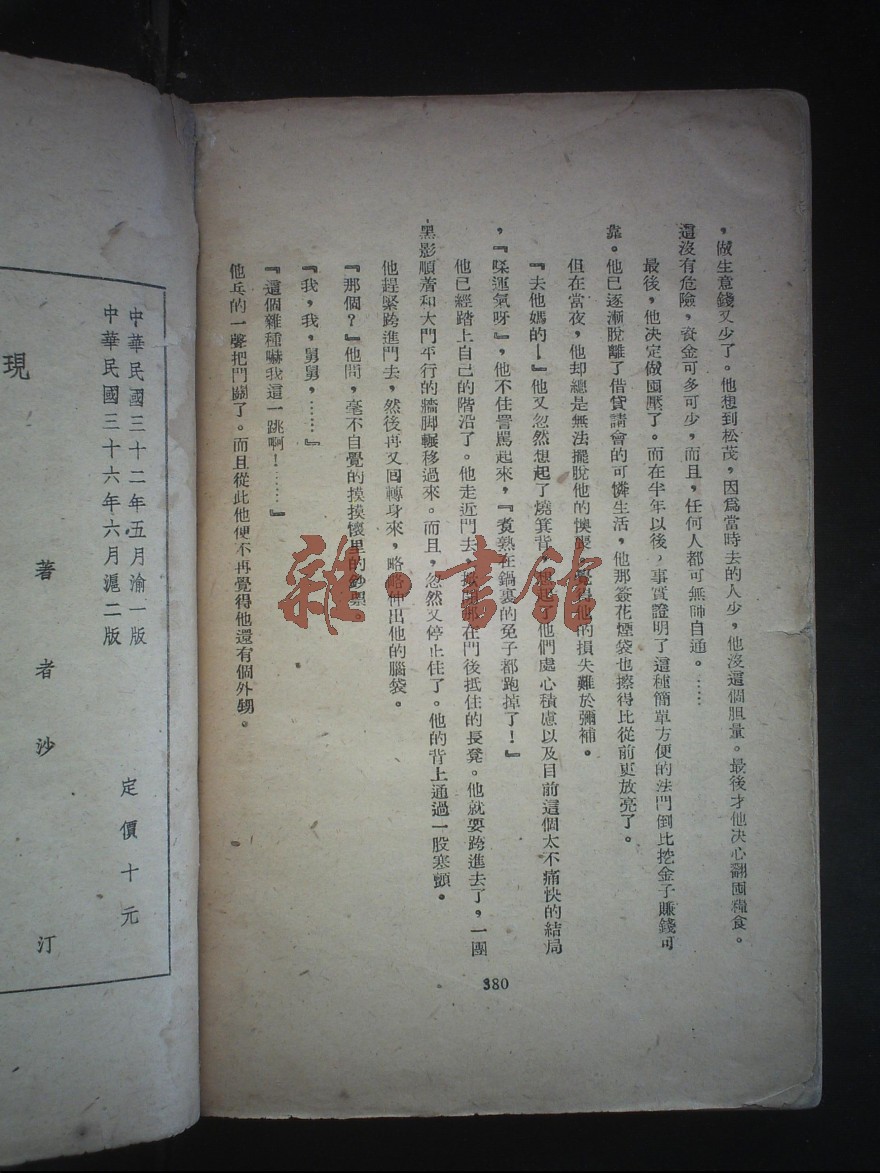 ，做生意錢又少了。他想到松茂，因爲當時去的人少，他沒這個胆量。最後才他决心翻囤糧食。
這沒有危險，資金可多可少，而且，任何人都可無師自通。……
最後，他决定做囤壓了。而在半年以後，事實證明了這種簡單方便的法門倒比挖金子賺錢可
靠。他已逐漸脫離了借貸請會的可憐生活，他那簽花煙袋也擦得比從前更放亮了。
但在當夜，他却總是無法擺脫他的懊喪，覺得他的損失難於彌補。
『去他媽的！』他又忽然想起了燒箕背，想起了他們處心積慮以及目前這個太不痛快的結局
，『嗏運氣呀』，他不住詈罵起來，『煮熟在鍋裏的兔子都跑掉了！』
他已經踏上自己的階沿了。他走近門去，掀開那在門後抵住的長凳。他就要跨進去了，一團
黑影順着和大門平行的牆脚輾移過來。而且，忽然又停止住了。他的背上通過一股寒顫。
他趕緊跨進門去，然後再又囘轉身來，略略伸出他的腦袋。
『那個？』他問，毫不自覺的摸摸懷里的鈔票。
『我，我，舅舅，……』
『這個雜種嚇我這一跳啊！……』
他兵的一聲把門關了。而且從此他便不再覺得他還有個外甥。
380
中華民國三十二年五月渝一版
中華民國三十六年六月滬二版
定價十元
現
著者沙汀
雜·書館